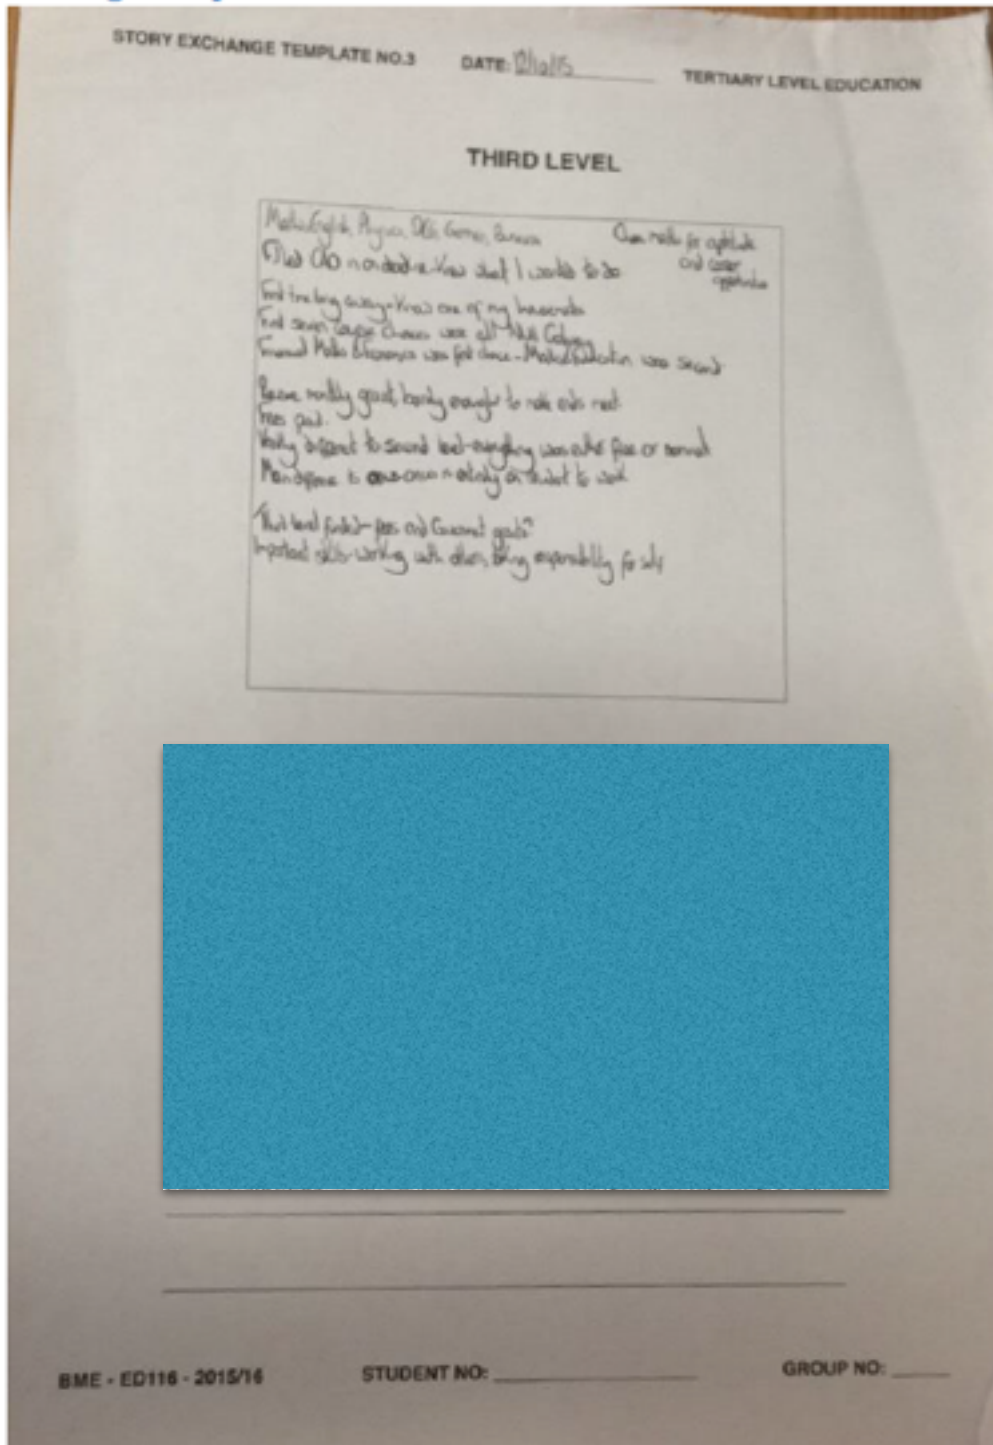 STORY EXCHANGE TEMPLATE NO.3 DATE: TERTIARY LEVEL EDUCATION
THIRD LEVEL
Maths, English, Physics, DCG, German, Business
Chose maths for aptitude
and career
opportunities
Filled CAO in on deadline - Knew what I wanted to do
First time living away - Knew one of my housemates
First seven course choices were all NUI Galway
Financial Maths & Economics was first choice - Maths & Education was second
Receive monthly grant, barely enough to make ends meet
Fees paid.
Vastly different to second level - everything was either free or
on student to work
Third level funded - fees and Government grants?
Important skills - working with others, taking responsibility for self
BME - ED116 - 2015/16 STUDENT NO: GROUP NO: